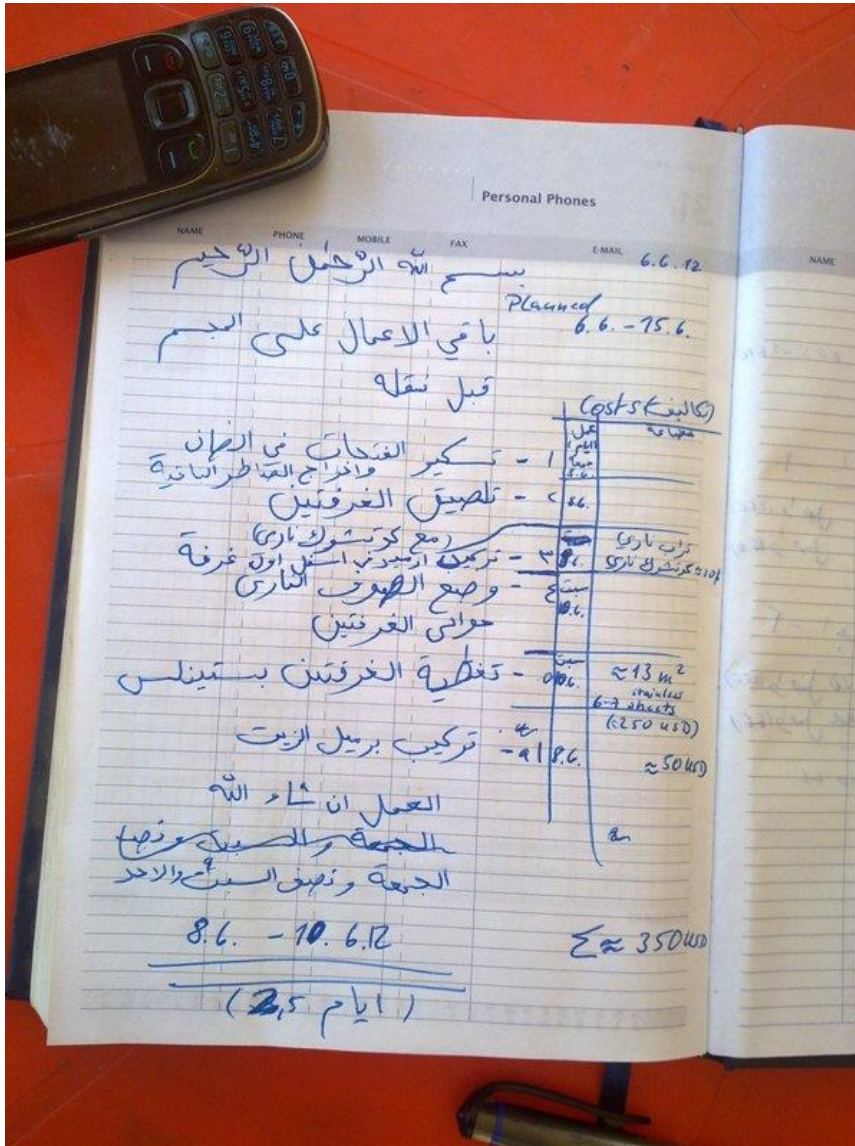 Personal Phones
NAME PHONE MOBILE FAX E-MAIL
NAME
6.6.12
بسم الله الرحمٰن الرّحيم
Planned
6.6. - 15.6.
باقي الاعمال على المجسم
قبل نقله
Costs (تكاليف)
عمل
١ - تسكير الفتحات في
واخراج القناطر الباقية
٢ - تلصيق الغرفتين
8.6.
(مع كوتشوك ناري)
٣ - تركيب اسفل اول غرفة
تراب ناري
كوتشوك ناري
٤ - وضع الصوف الناري
حوالي الغرفتين
سبت
٥ - تغطية الغرفتين بستينلس
≈ 13 m²
stainless
6-7 sheets
(250 USD)
تركيب برميل الزيت
8.6.
≈ 50 USD
العمل ان شاء الله
الجمعة والسبت ونصف
الجمعة ونصف السبت والاحد
8.6. - 10.6.12
Σ ≈ 350 USD
(2,5 ايام)